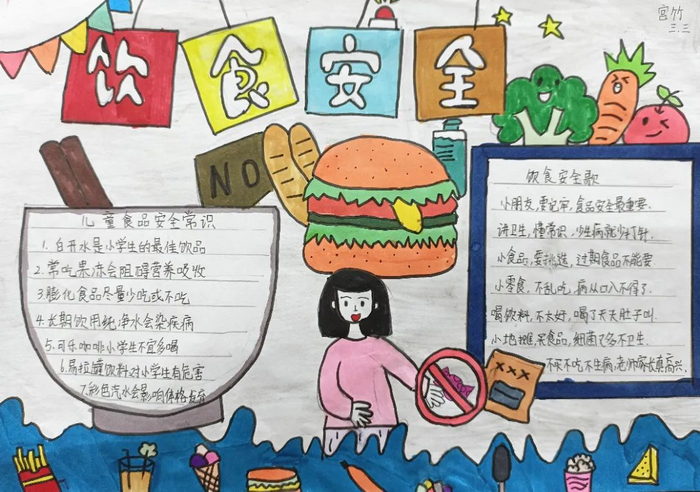 宫竹
三.三
饮食安全
NO
儿童食品安全常识
1.白开水是小学生的最佳饮品
2.常吃果冻会阻碍营养吸收
3.膨化食品尽量少吃或不吃
4.长期饮用纯净水会染疾病
5.可乐咖啡小学生不宜多喝
6.易拉罐饮料对小学生有危害
7.彩色汽水会影响体格发育
饮食安全歌
小朋友,要记牢,食品安全最重要.
讲卫生,懂常识,少生病就少打针.
小食品,要挑选,过期食品不能要.
小零食,不乱吃,病从口入不得了.
喝饮料,不太好,喝了天天肚子叫.
小地摊,买食品,细菌了多不卫生.
不乐不吃不生病,老师家长真高兴.
xxx